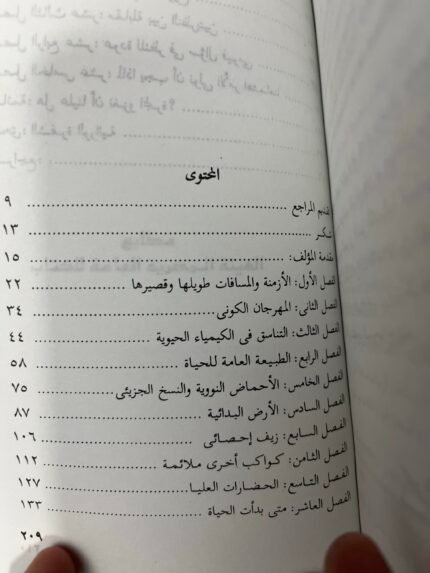 المحتوى
تقديم المراجع ........ ٩
شكر ........ ١٣
مقدمة المؤلف: ........ ١٥
الفصل الأول: الأزمنة والمسافات طويلها وقصيرها ........ ٢٢
الفصل الثانى: المهرجان الكونى ........ ٣٤
الفصل الثالث: التناسق فى الكيمياء الحيوية ........ ٤٤
الفصل الرابع: الطبيعة العامة للحياة ........ ٥٨
الفصل الخامس: الأحماض النووية والنسخ الجزيئى ........ ٧٥
الفصل السادس: الأرض البدائية ........ ٨٧
الفصل السابع: زيف إحصائى ........ ١٠٦
الفصل الثامن: كواكب أخرى ملائمة ........ ١١٢
الفصل التاسع: الحضارات العليا ........ ١٢٧
الفصل العاشر: متى بدأت الحياة ........ ١٣٣
٢٠٩